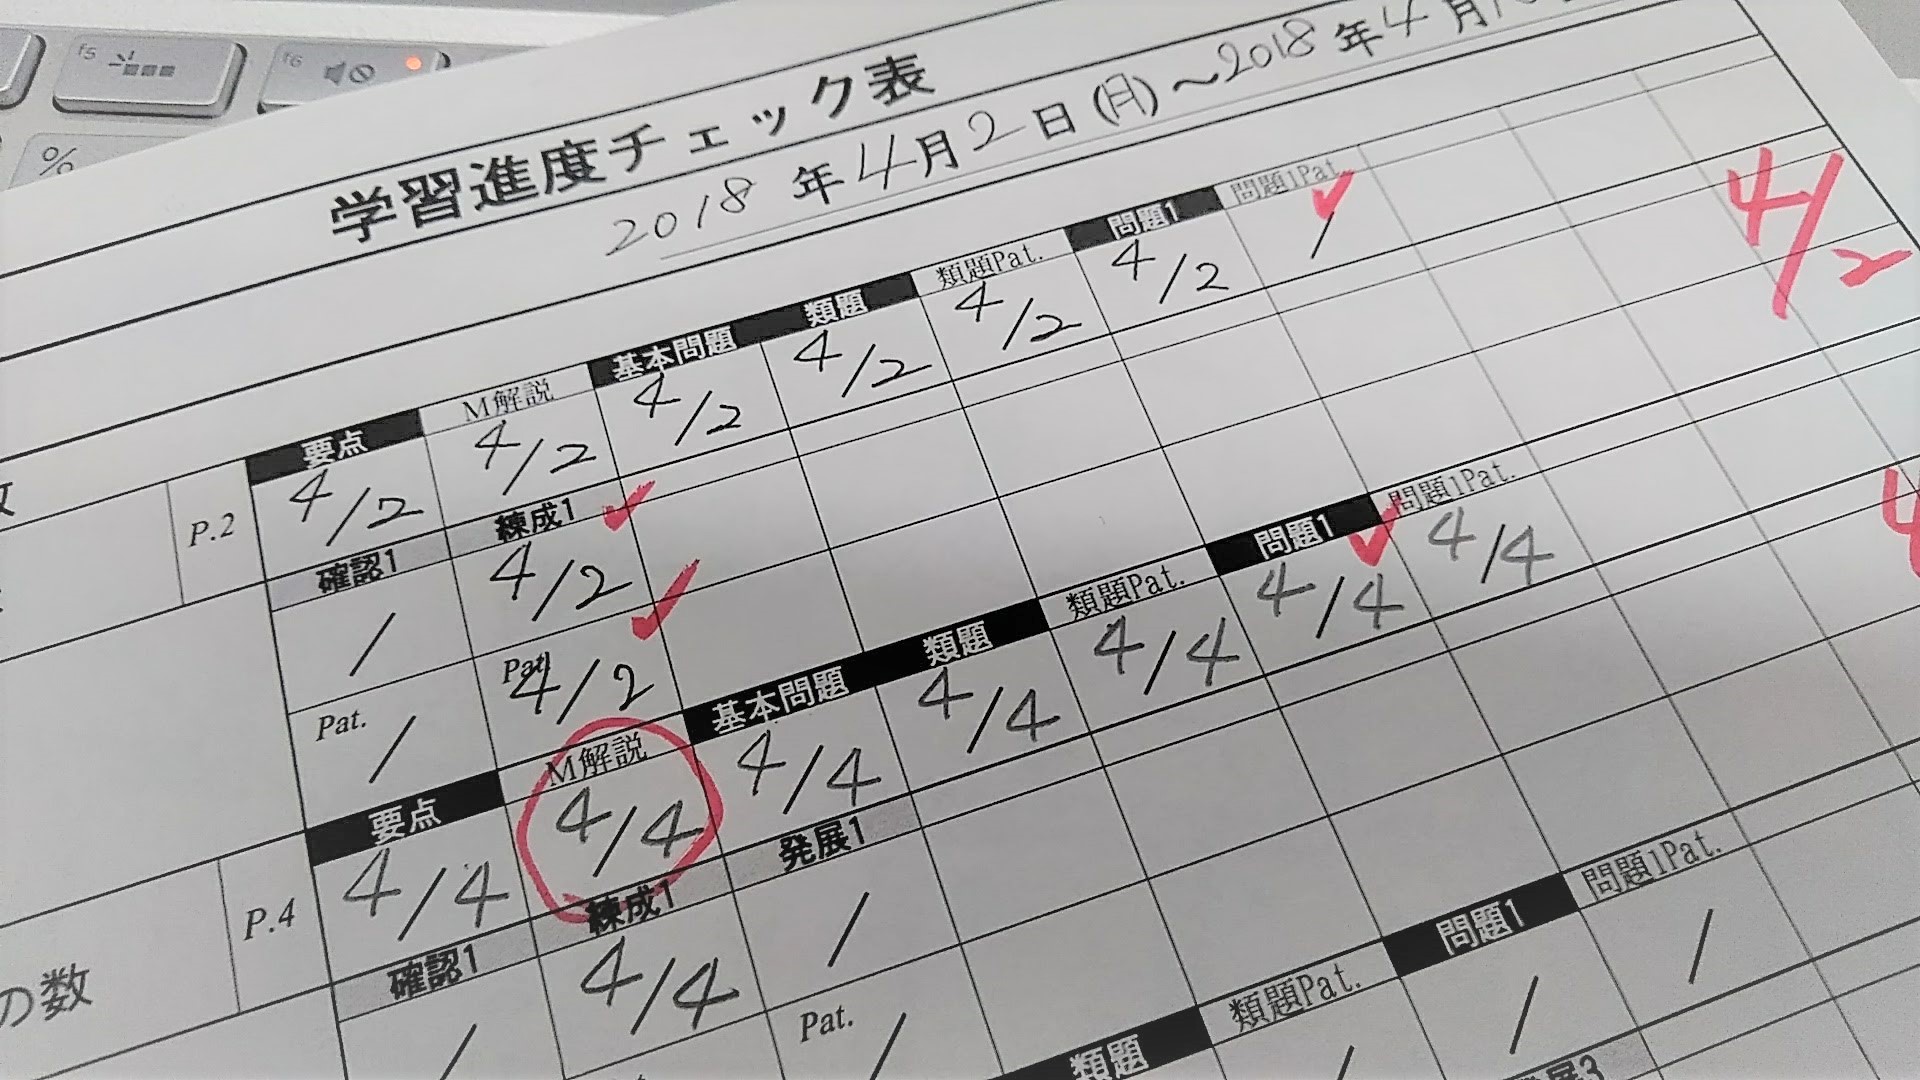 f5
f6
%
学習進度チェック表
2018年4月2日(月)～2018年4月
要点 M解説 基本問題 類題 類題Pat. 問題1 問題1Pat.
P.2 4/2 4/2 4/2 4/2 4/2 4/2 / 4/2
確認1 練成1
/ 4/2
Pat. Pat.
/ 4/2
要点 M解説 基本問題 類題 類題Pat. 問題1 問題1Pat.
P.4 4/4 4/4 4/4 4/4 4/4 4/4 4/4
の数
確認1 練成1 発展1
/ 4/4 /
Pat.
/
類題 類題Pat. 問題1 問題1Pat.
/ / /